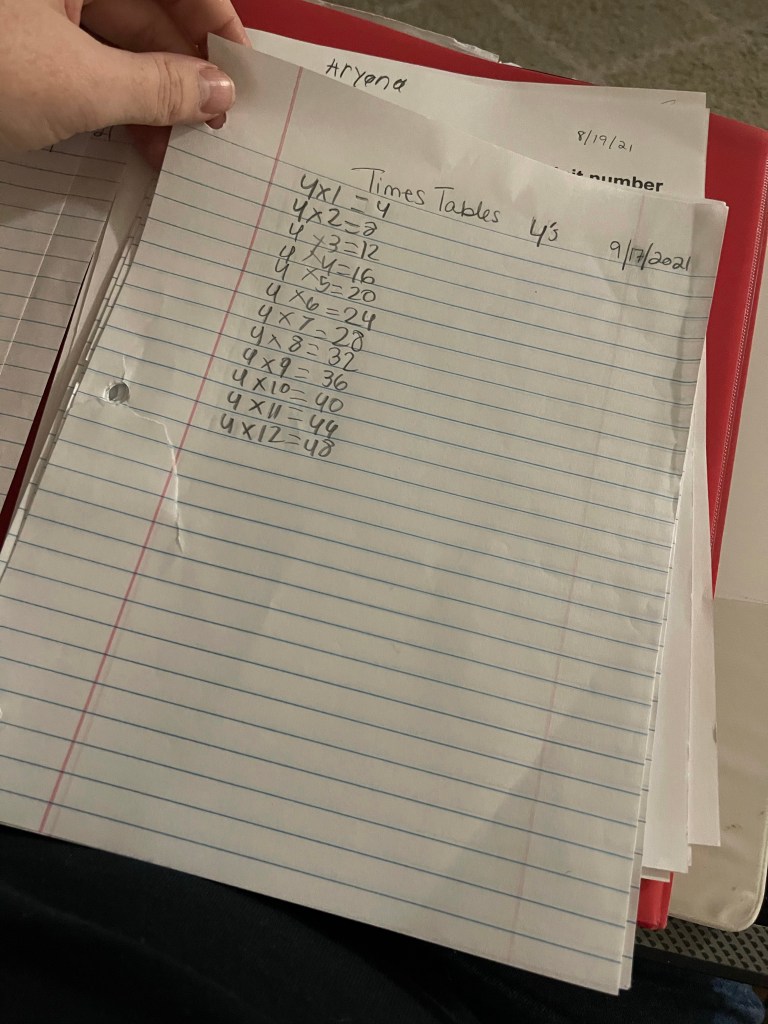 Aryana
8/19/21
it number
Times Tables 4's 9/17/2021
4x1 = 4
4x2=8
4x3=12
4x4=16
4x5=20
4x6=24
4x7=28
4x8=32
4x9=36
4x10=40
4x11=44
4x12=48